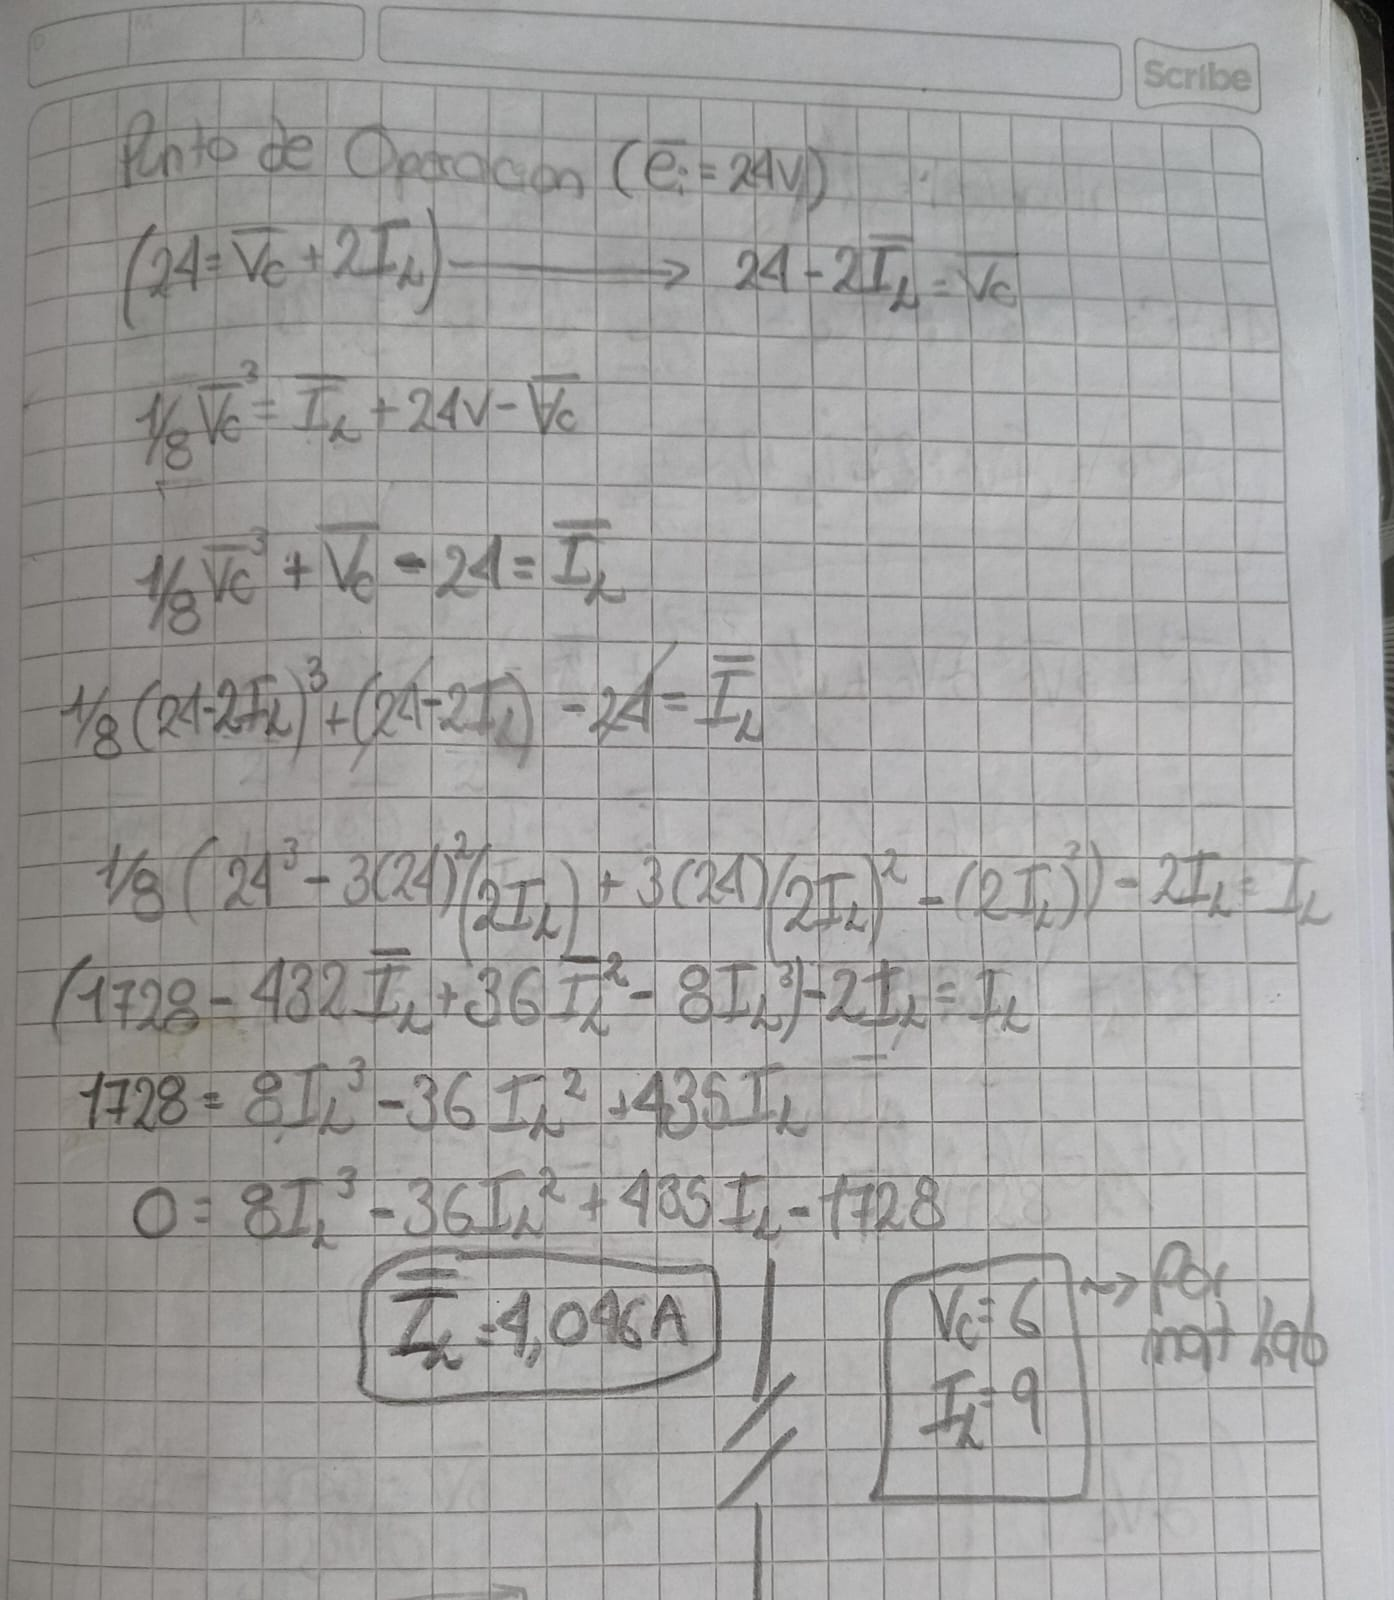 D M A
Scribe
Punto de Operacion (ēᵢ = 24V)
(24 = V̄c + 2Ī_L) ⟶ 24 - 2Ī_L = V̄c
1/8 V̄c³ = Ī_L + 24V - V̄c
1/8 V̄c³ + V̄c - 24 = Ī_L
1/8 (24-2Ī_L)³ + (24-2Ī_L) - 24 = Ī_L
1/8 (24³ - 3(24)²(2I_L) + 3(24)(2I_L)² - (2I_L)³) - 2I_L = I_L
(1728 - 432 Ī_L + 36 Ī_L² - 8I_L³) - 2I_L = I_L
1728 = 8I_L³ - 36 I_L² + 435 I_L
0 = 8I_L³ - 36I_L² + 435 I_L - 1728
Ī_L = 4,046A
Vc = 6 ⇝ Por
I_L = 9 mat lab